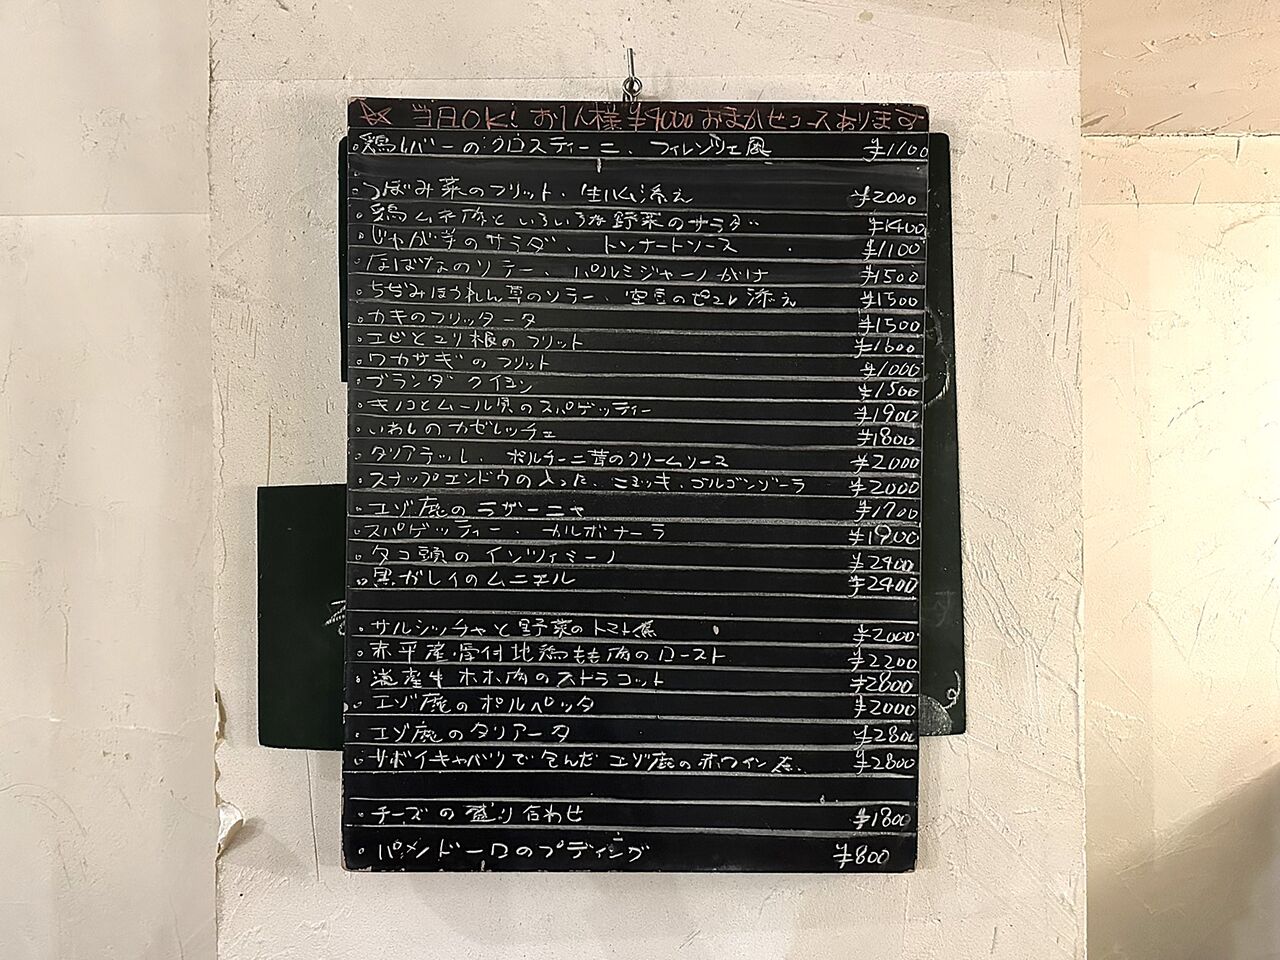 ☆ 当日OK! お1人様¥4000おまかせコースあります
・鶏レバーのクロスティーニ、フィレンツェ風 ¥1100
・つぼみ菜のフリット、生ハム添え ¥2000
・鶏ムネ肉といろいろな野菜のサラダ ¥1400
・じゃが芋のサラダ、トンナートソース ¥1100
・なばなのソテー、パルミジャーノがけ ¥1500
・ちぢみほうれん草のソテー、空豆のピュレ添え ¥1500
・カキのフリッタータ ¥1500
・エビとユリ根のフリット ¥1600
・ワカサギのフリット ¥1000
・ブランダクイユン ¥1500
・キノコとムール貝のスパゲッティー ¥1900
・いわしのカゼレッチェ ¥1800
・タリアテッレ、ポルチーニ茸のクリームソース ¥2000
・スナップエンドウの入った、ニョッキ、ゴルゴンゾーラ ¥2000
・エゾ鹿のラザーニャ ¥1700
・スパゲッティー カルボナーラ ¥1900
・タコ頭のインツィミーノ ¥2400
・黒ガレイのムニエル ¥2400
・サルシッチャと野菜のトマト煮 ¥2000
・赤平産・骨付地鶏もも肉のロースト ¥2200
・道産牛ホホ肉のストラコット ¥2800
・エゾ鹿のポルペッタ ¥2000
・エゾ鹿のタリアータ ¥2800
・サボイキャベツで包んだエゾ鹿の赤ワイン煮 ¥2800
・チーズの盛り合わせ ¥1800
・パンドーロのプディング ¥800